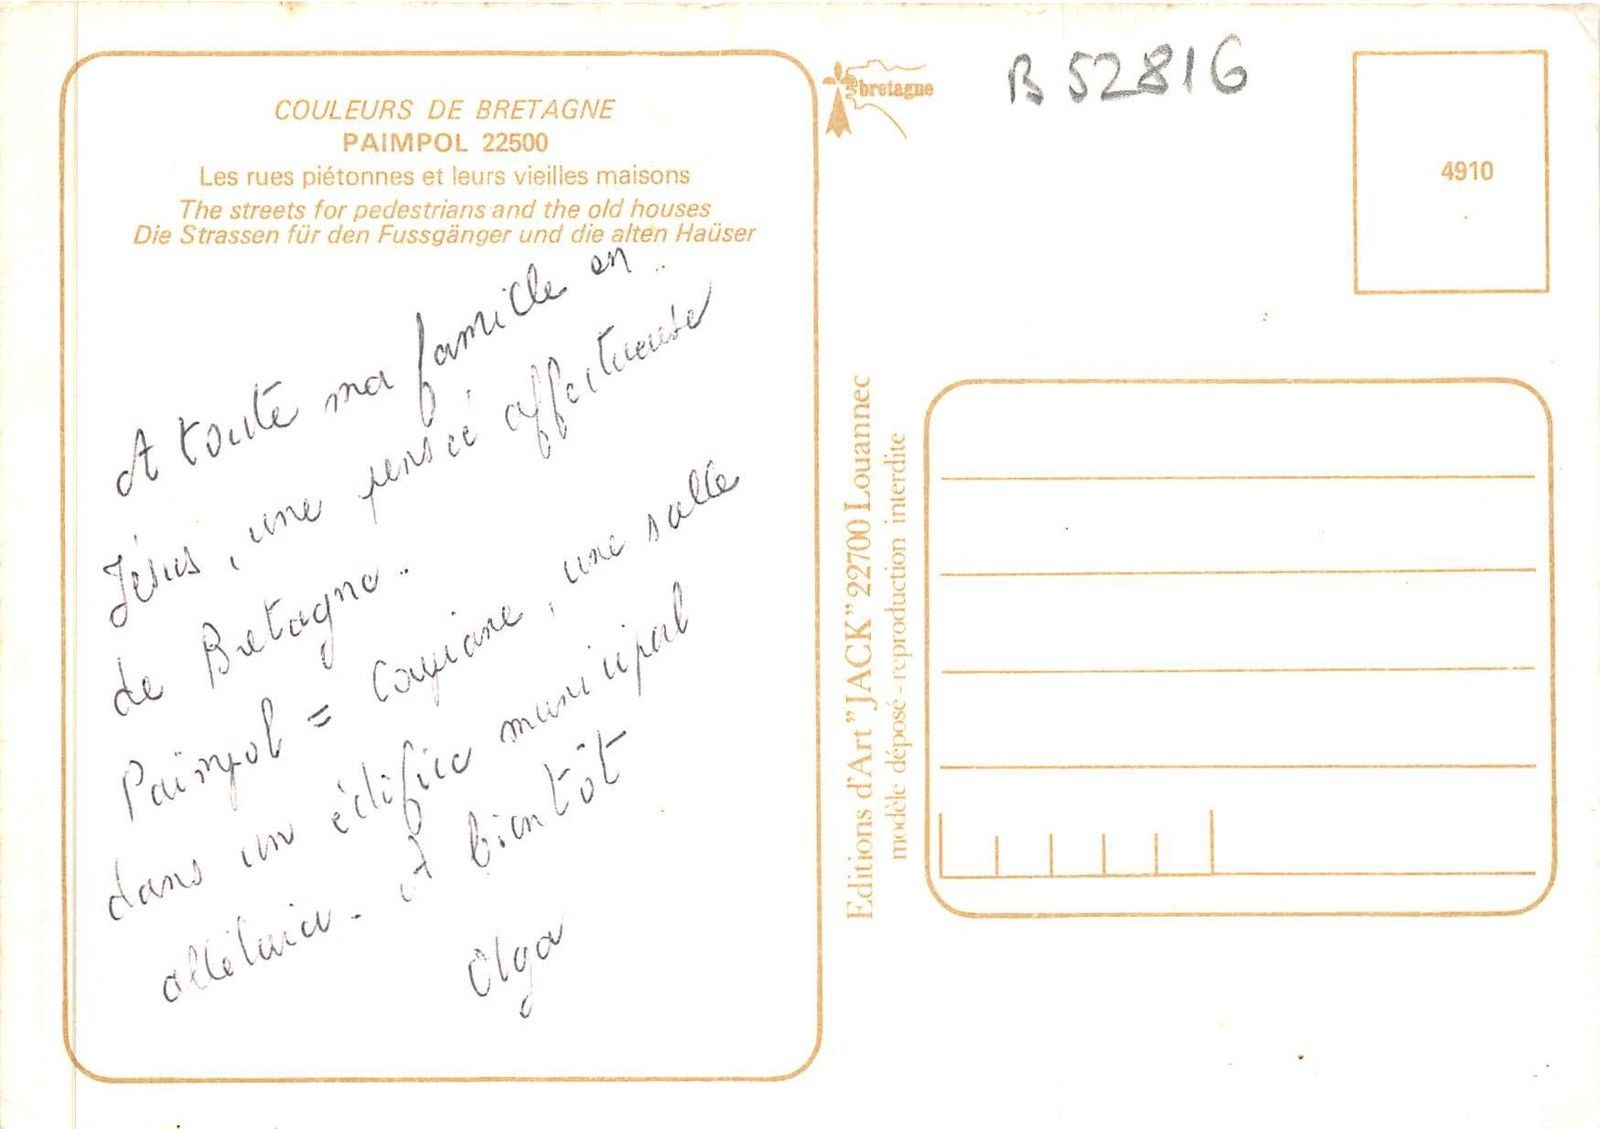 COULEURS DE BRETAGNE
PAIMPOL 22500
Les rues piétonnes et leurs vieilles maisons
The streets for pedestrians and the old houses
Die Strassen für den Fussgänger und die alten Haüser
A toute ma famille en
Jésus, une pensée affectueuse
de Bretagne.
Païmpol = Cayiane, une salle
dans un édifice municipal
alléluia. A bientôt
Olga
bretagne
B 52816
4910
Editions d'Art "JACK" 22700 Louannec
modèle déposé - reproduction interdite